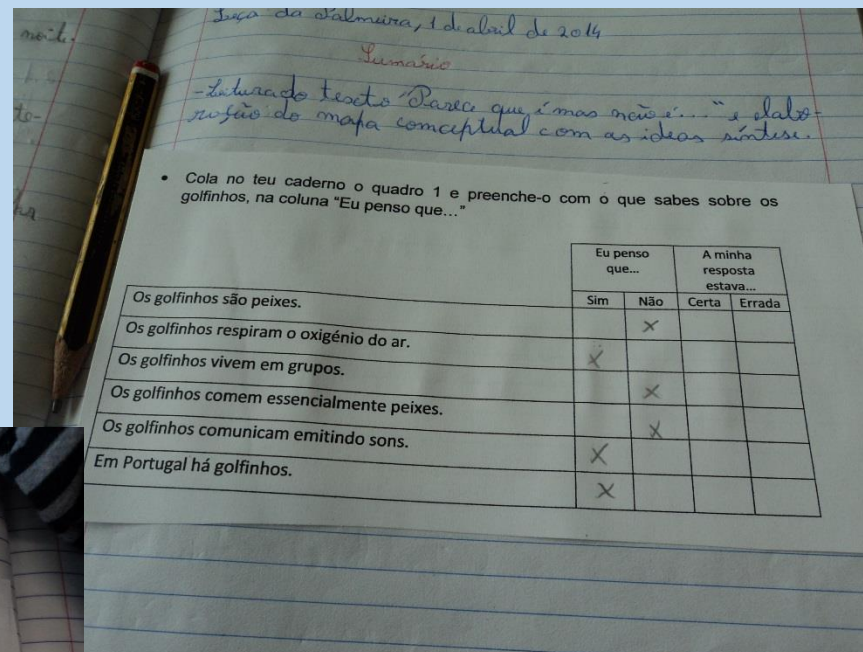 Leça da Palmeira, 1 de abril de 2014
Sumário
- Leitura do texto "Parece que é mas não é..." e elabo-
ração do mapa comceptual com as ideas síntese.
• Cola no teu caderno o quadro 1 e preenche-o com o que sabes sobre os
golfinhos, na coluna “Eu penso que...”
Eu penso que... A minha resposta estava...
Sim Não Certa Errada
Os golfinhos são peixes. X
Os golfinhos respiram o oxigénio do ar. X
Os golfinhos vivem em grupos. X
Os golfinhos comem essencialmente peixes. X
Os golfinhos comunicam emitindo sons. X
Em Portugal há golfinhos. X